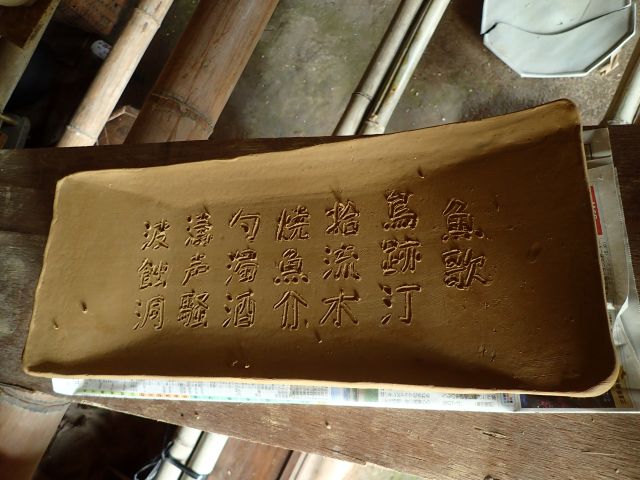 魚歌
鳥跡汀
拾流木
焼魚介
勺濁酒
濤声騒
波蝕洞